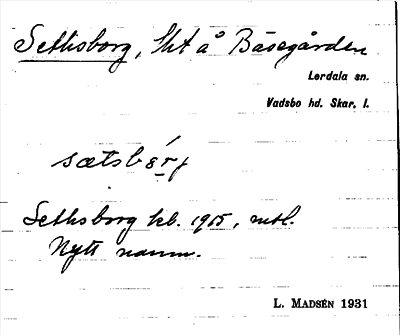 Sethsborg, lht å Båsegården
Lerdala sn.
Vadsbo hd. Skar. l.
sætsbɛrj
Sethsborg kb. 1915, mtl.
Nytt namn.
L. MADSÉN 1931